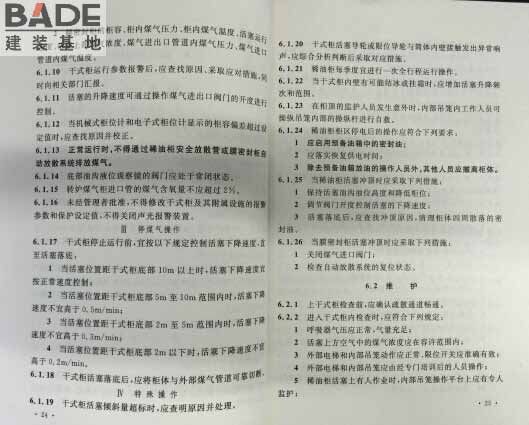 BADE
建装基地
柜容、柜内煤气压力、柜内煤气温度、活塞运行
浓度、煤气进出口管道内煤气压力、煤气进出口
管道内煤气温度。
6.1.10 干式柜运行参数报警后，应查找原因、采取应对措施，同
时向相关部门汇报。
6.1.11 活塞的升降速度可通过操作煤气进出口阀门的开度进行
控制。
6.1.12 当机械式柜位计和电子式柜位计显示的柜容偏差超过设
定值时，应查找原因并校正。
6.1.13 正常运行时，不得通过稀油柜安全放散管或膜密封柜自
动放散系统排放煤气。
6.1.14 底部油沟液位观察镜的阀门应处于常闭状态。
6.1.15 转炉煤气柜进口管的煤气含氧量不应超过2%。
6.1.16 未经管理者批准，不得修改干式柜及其附属设施的报警
参数和保护设定值，不得关闭声光报警装置。
Ⅲ 停煤气操作
6.1.17 干式柜停止运行前，宜按以下规定控制活塞下降速度，直
至活塞落底：
1 当活塞位置距干式柜底部10m以上时，活塞下降速度宜
按正常速度控制；
2 当活塞位置距干式柜底部5m至10m范围内时，活塞下降
速度不宜高于0.5m/min；
3 当活塞位置距干式柜底部2m至5m范围内时，活塞下降
速度不宜高于0.3m/min；
4 当活塞位置距干式柜底部2m以下时，活塞下降速度不宜
高于0.2m/min。
6.1.18 干式柜活塞落底后，应将柜体与外部煤气管道可靠切断。
Ⅳ 特殊操作
6.1.19 干式柜活塞倾斜量超标时，应查明原因并处理。
· 24 ·
6.1.20 干式柜活塞导轮或限位导轮与筒体内壁接触发出异常响
声，应综合分析判断后采取对应措施。
6.1.21 稀油柜每季度宜进行一次全行程运行操作。
6.1.22 当干式柜内壁有可能结冰或挂霜时，应增加活塞升降频
次和范围。
6.1.23 在柜顶的监护人员发生意外时，内部吊笼内工作人员可
操纵吊笼内部的操纵杆进行自救。
6.1.24 稀油柜柜区停电后的操作应符合下列要求：
1 应启用预备油箱中的密封油；
2 应落实恢复供电时间；
3 除去预备油箱放油的操作人员外，其他人员应撤离柜体。
6.1.25 当稀油柜活塞冲顶时应采取下列措施：
1 保持活塞油沟油位高度和降低柜位；
2 调节阀门开度控制活塞的下降速度；
3 活塞落底后，应查找冲顶原因，清理柜体四周散落的密
封油。
6.1.26 当膜密封柜活塞冲顶时应采取下列措施：
1 关闭煤气进口阀门；
2 检查自动放散系统的复位状态。
6.2 维 护
6.2.1 上干式柜检查前，应确认疏散通道畅通。
6.2.2 进入干式柜内检查时，应符合下列规定：
1 呼吸器气压应正常，气量充足；
2 活塞上方空气中的煤气浓度应在容许范围内；
3 外部电梯和内部吊笼动作应正常，限位开关应准确有效；
4 外部电梯和内部吊笼应由经专门培训后的人员操作；
5 稀油柜活塞上有人作业时，内部吊笼操作平台上应有专人
监护；
· 25 ·